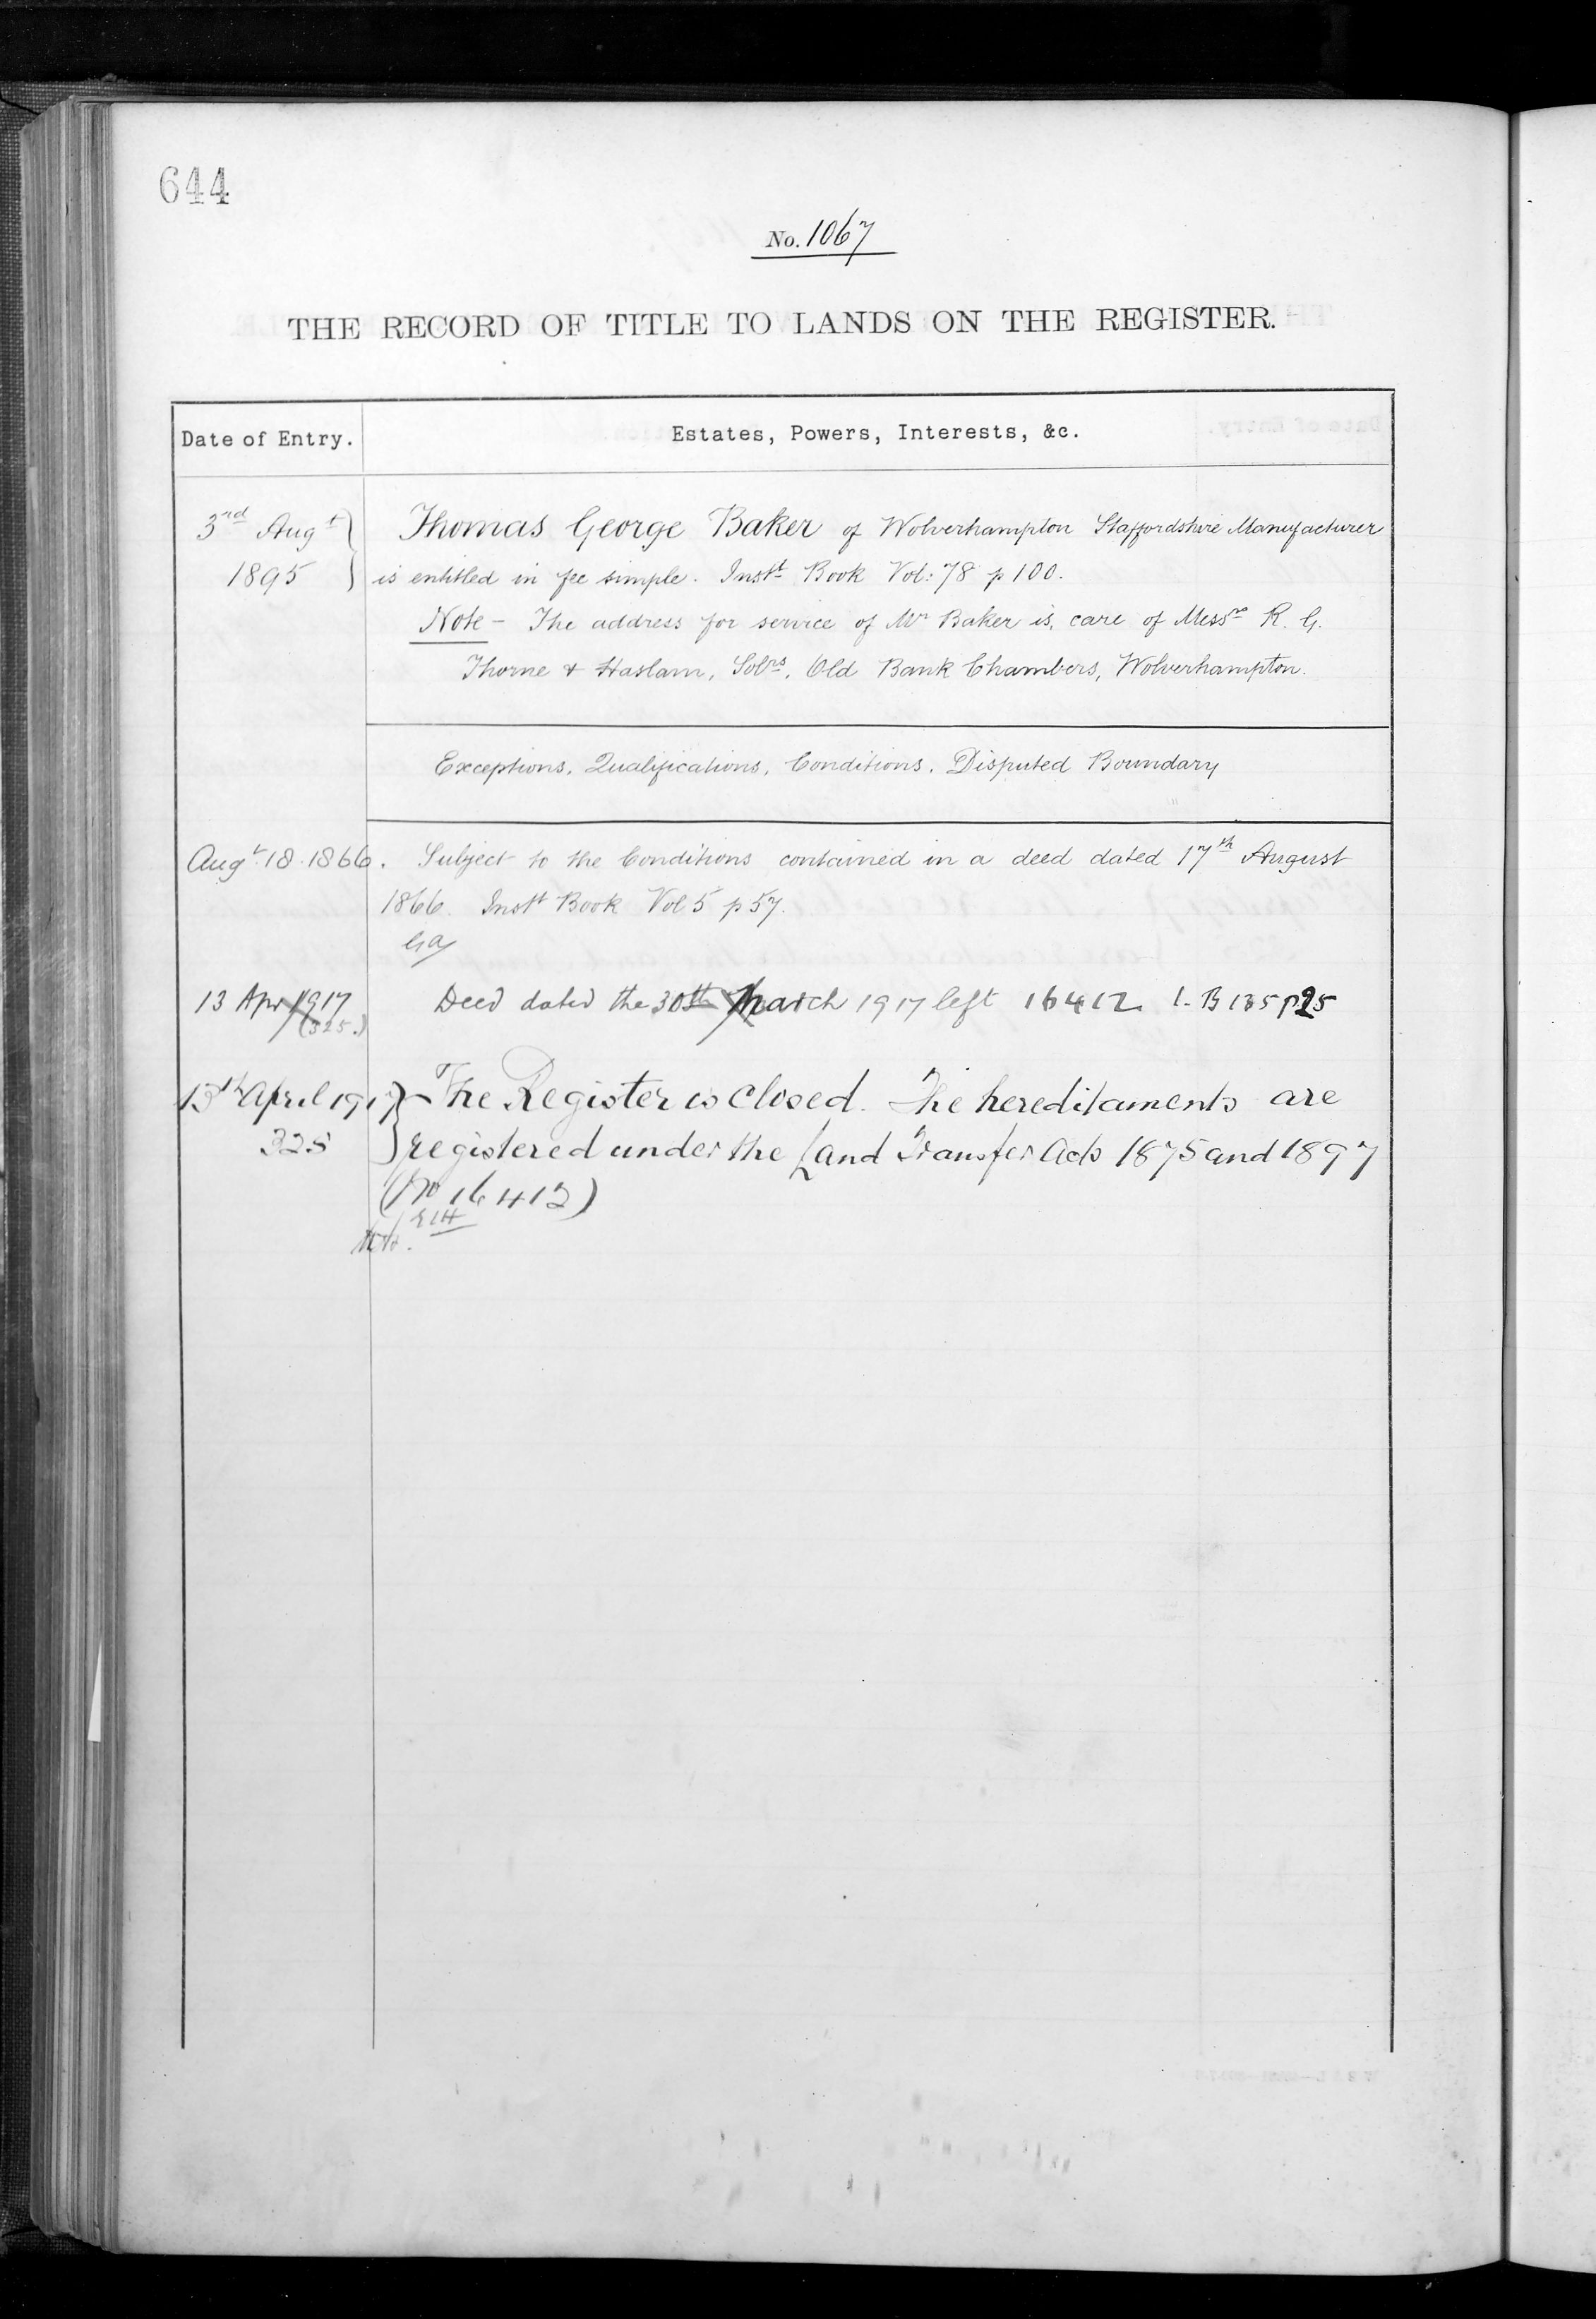 644
No. 1067
THE RECORD OF TITLE TO LANDS ON THE REGISTER.
Date of Entry. Estates, Powers, Interests, &c.
3rd Augt Thomas George Baker of Wolverhampton Staffordshire Manufacturer
1895 is entitled in fee simple. Instt Book Vol: 78 p 100.
Note - The address for service of Mr Baker is, care of Messrs R. G.
Thorne & Haslam, Solrs, Old Bank Chambers, Wolverhampton.
Exceptions, Qualifications, Conditions, Disputed Boundary
Augt 18. 1866. Subject to the Conditions contained in a deed dated 17th August
1866. Instt Book Vol 5 p 57.
13 Apr 1917 Deed dated the 30th March 1917 left 16412 1-B 135 p25
(325.)
13th April 1917 The Register is closed. The hereditaments are
325 registered under the Land Transfer Acts 1875 and 1897
(No 16412)